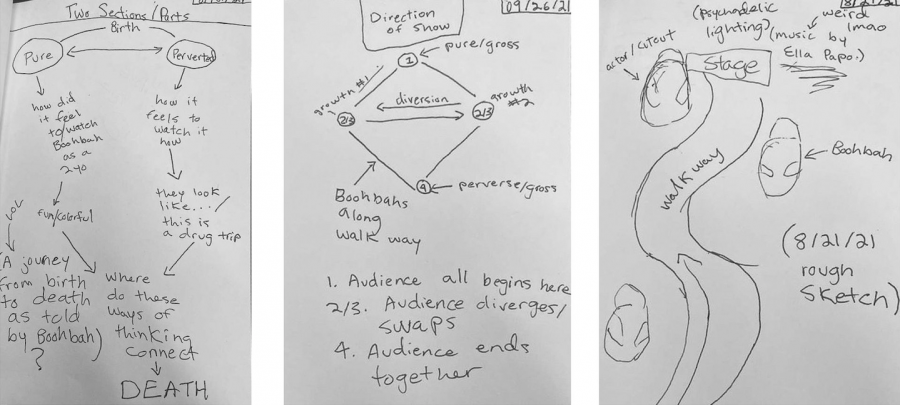 Two Sections/Parts
Birth
Pure
Perverted
how did
it feel
to watch
Boohbah
as a
2yo
how it
feels to
watch it
now
they look
like...
this is
a drug trip
fun/colorful
(A jouney
from birth
to death
as told
by Boohbah)
?
where
do these
ways of
thinking
connect
DEATH
09/26/21
Direction
of show
1
pure/gross
growth #1
diversion
growth
#2
2/3
2/3
4
perverse/gross
Boohbahs
along
walk way
1. Audience all begins here
2/3. Audience diverges/
swaps
4. Audience ends
together
8/21/21
(psychadelic
lighting)
weird
lmao
(music by
Ella Papo.)
actor/cutout
Stage
walk way
Boohbah
(8/21/21
rough
sketch)